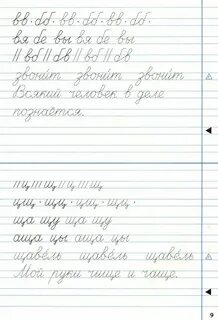 вв · бб · вв · бб · вв · бб ·
вя бе вы вя бе вы
|| вб || бв || вб || бв
звони́т звони́т звони́т
Всякий человек в деле
познаётся.
||ц|||щ||ц|||щ||ц|||щ
цщ · щц · цщ · щц ·
ща щу ща щу
аща цы аща цы
щаве́ль щаве́ль щаве́ль
Мой руки чище и чаще.
9